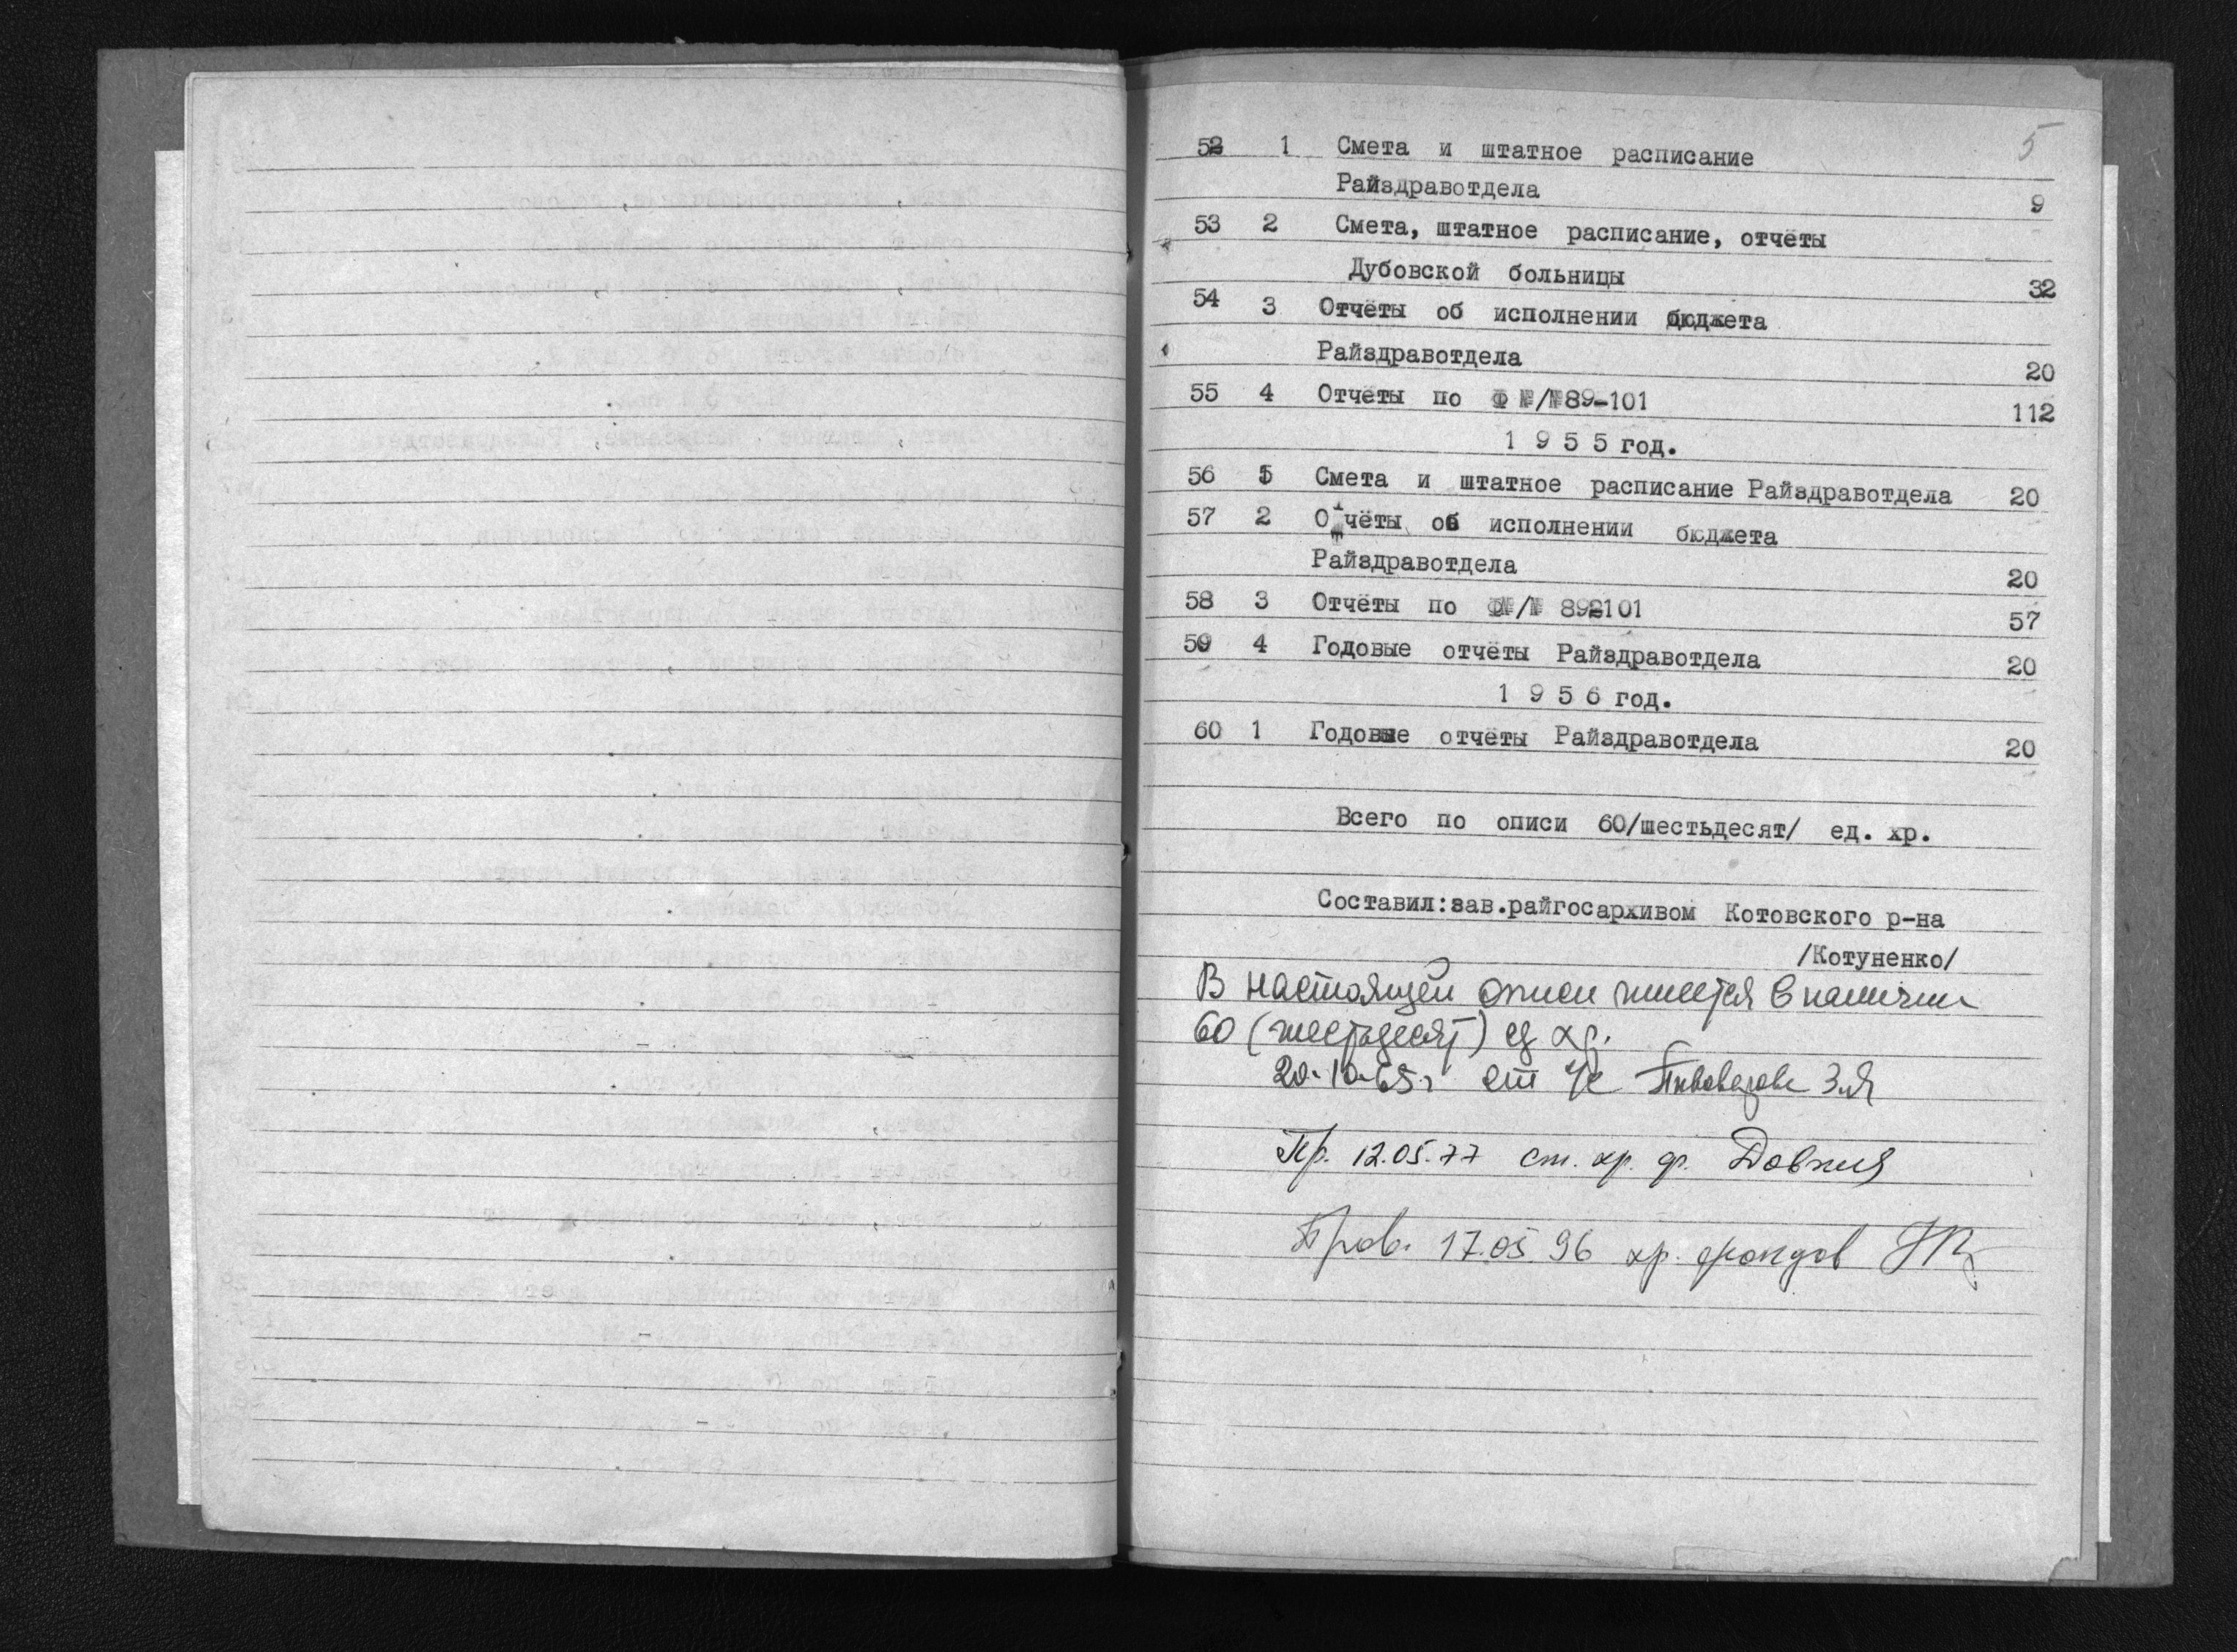 5
52 1 Смета и штатное расписание
Райздравотдела 9
53 2 Смета, штатное расписание, отчёты
Дубовской больницы 32
54 3 Отчёты об исполнении бюджета
Райздравотдела 20
55 4 Отчёты по Ф №/№89-101 112
1 9 5 5 год.
56 1 Смета и штатное расписание Райздравотдела 20
57 2 Отчёты об исполнении бюджета
Райздравотдела 20
58 3 Отчёты по Ф№/№ 89-101 57
59 4 Годовые отчёты Райздравотдела 20
1 9 5 6 год.
60 1 Годовые отчёты Райздравотдела 20
Всего по описи 60/шестьдесят/ ед. хр.
Составил:зав.райгосархивом Котовского р-на
/Котуненко/
В настоящей описи имеется в наличии
60 (шестьдесят) ед хр.
20.10.65г
Пр. 12.05.77 ст. хр. ф.
Пров. 17.05.96 хр. фондов